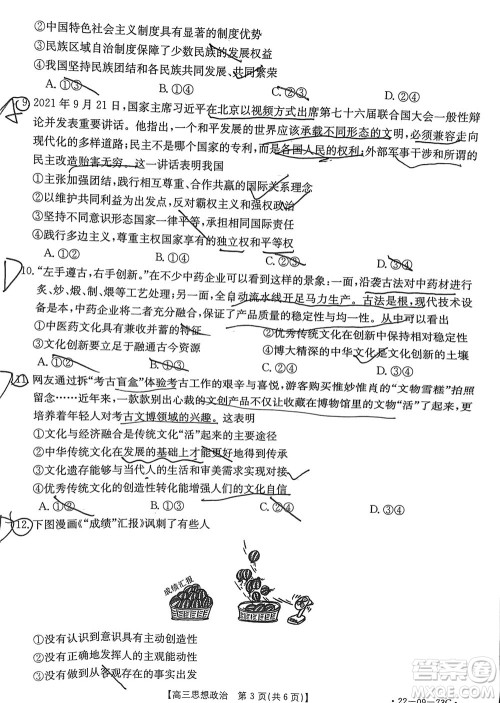 ②中国特色社会主义制度具有显著的制度优势
③民族区域自治制度保障了少数民族的发展权益
④我国坚持各民族团结和共同繁荣
A.①② B.①③ C.②④ D.③④
9. 2021年9月21日,国家主席习近平在北京以视频方式出席第七十六届联合国大会一般性辩
论并发表重要讲话。他指出,一个和平发展的世界应该承载不同形态的文明,必须兼容走向
现代化的多样道路;民主不是哪个国家的专利,而是各国人民的权利;外部军事干涉和所谓的
民主改造贻害无穷。这一讲话表明我国
①主张加强对话、合作共赢的国际关系理念
②以维护共同利益为出发点,反对霸权主义和强权政治
③坚持不同意识形态国家一律平等,合作共赢
④践行多边主义,尊重各国享有的独立权和平等权
A.①② B.①④ C.②③ D.③④
10.“左手遵古,右手创新。”在不少中药企业可以看到这样的景象:一方面,沿袭古法对中药材进行
炙、炒、煅、煨等工艺处理;另一方面,全自动流水线开足马力生产。古法是根,现代化是
翼,中药企业将二者充分融合,保证了产品质量的稳定性与均一性。由此可见
①中医药文化具有兼收并蓄的特征 ②优秀传统文化具有稳定性与创新性
③文化创新要立足于融通古今文化 ④博大精深的中华文化是文化创新的土壤
A.①② B.①③ C.②④ D.③④
11.网友通过拆“考古盲盒”体验考古工作的艰辛与喜悦,游客购买惟妙惟肖的“文物雪糕”拍照
留念……近年来,一款款别出心裁的文创产品不仅让收藏在博物馆里的文物“活”了起来,更
培养着年轻人对考古文博领域的兴趣。这表明
①文化与经济融合是传统文化“活”起来的主要途径
②中华传统文化在发展的基础上才能更好地继承
③文化遗存能够与当代人的生活和审美需求实现对接
④优秀传统文化的创造性转化能增强人们的文化自信
A.①② B.①③ C.②④ D.③④
12.下图漫画《“成绩”汇报》讽刺了有些人
成绩汇报
①没有认识到意识具有主动创造性
②没有做到主观与客观具体的历史的统一
③没有从客观存在的事实出发
④没有发现事物的真实联系
【高三思想政治 第3页(共6页)】
22-09-72C